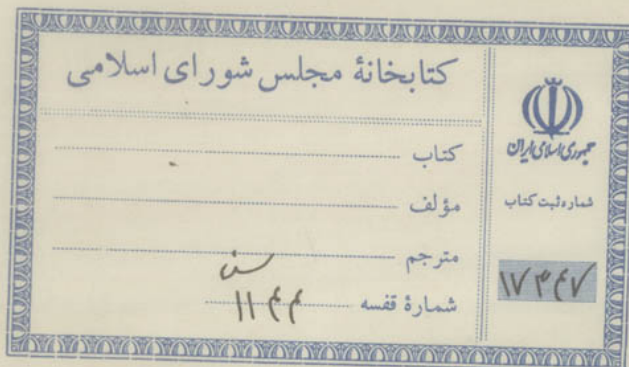 کتابخانهٔ مجلس شورای اسلامی
کتاب
مؤلف
مترجم
شمارهٔ قفسه ۱۱۴۴
جمهوری اسلامی ایران
شماره ثبت کتاب
۱۷۳۴۷